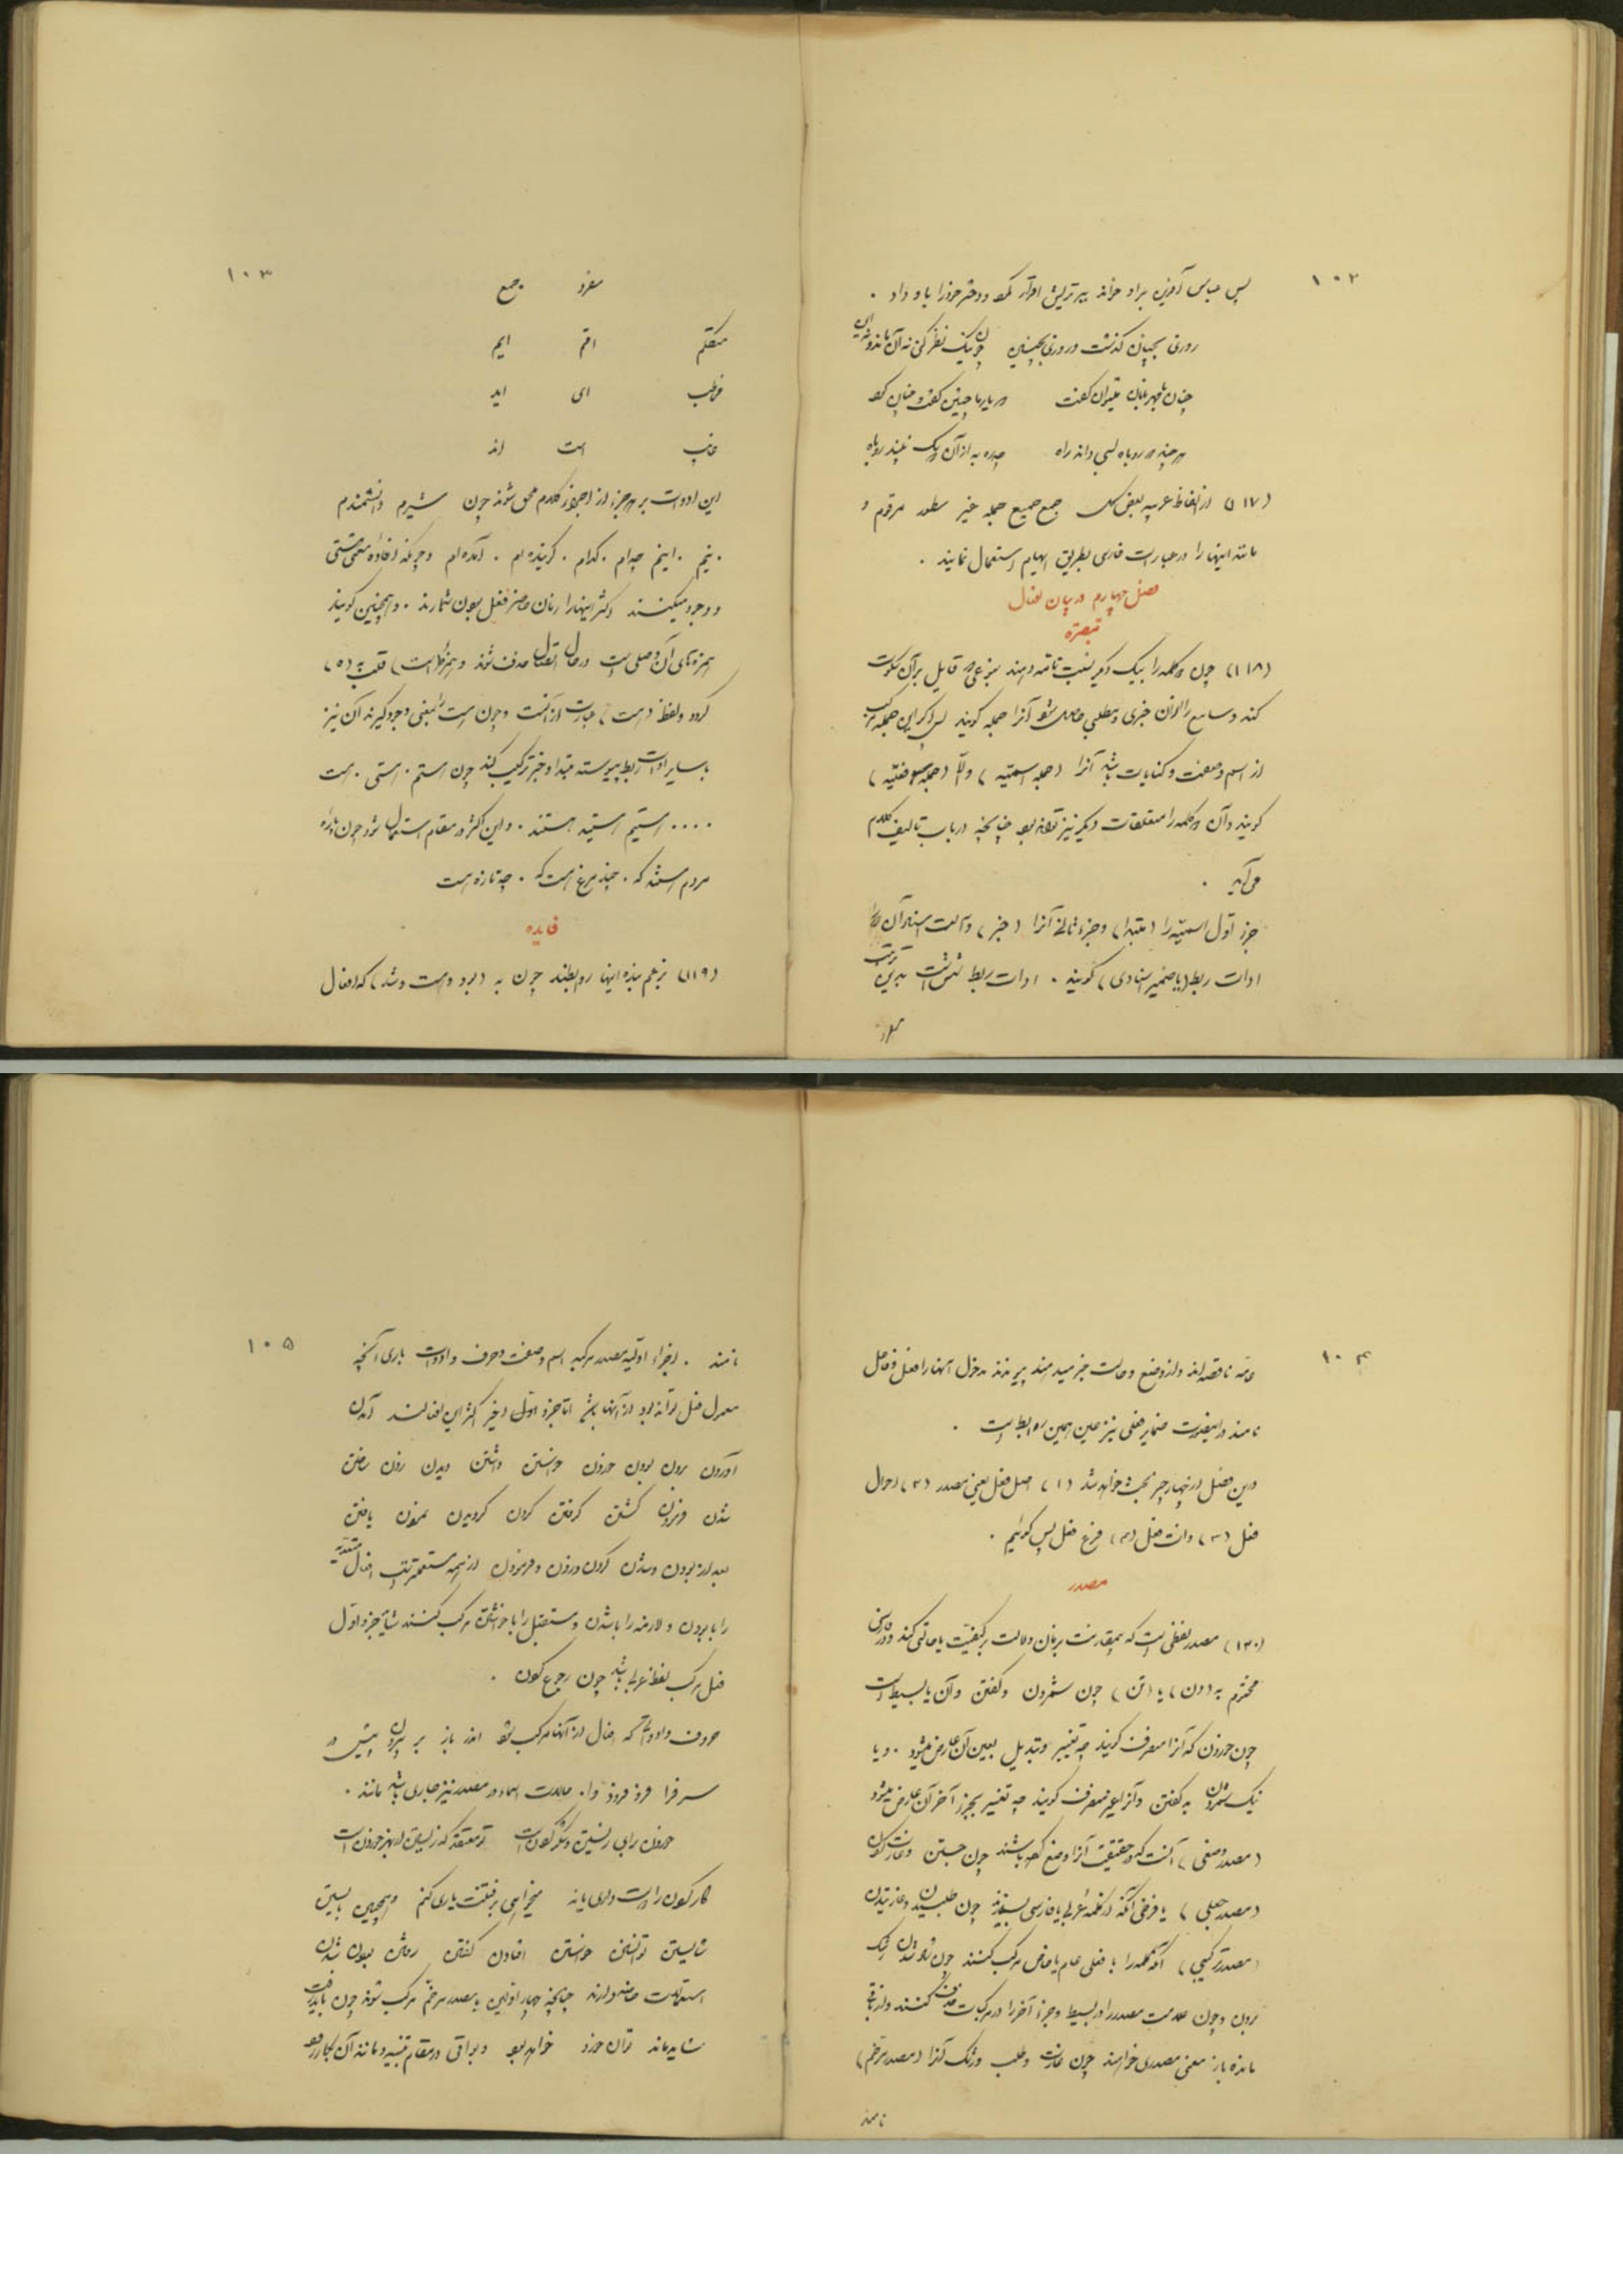 ۱۰۲
پس عباس آفرین بر او خواند ببر تریش اقرار کرد و دختر خود را باو داد .
روزی بچنان گذشت و روزی بچنین چون نیک نظر کنی نه آن ماند و نه این
چنان با مهربانان میتوان گفت در یاریها چنین کفت و چنان کرد
هر چند که روباه بسی داند راه چاره به از آن که سک نبیند روباه
(۱۱۷) از الفاظ عربیه بعض کل جمع جمیع جمله غیر سطور مرقوم و
مانند اینها را در عبارت فارسی بطریق ابهام استعمال نمایند .
فصل چهارم در بیان افعال
تبصره
(۱۱۸) چون دو کلمه را بیک دیگر نسبت تامه دهند بنوعی که قایل بر آن سکوت
کند و سامع را از آن خبری و مطلبی حاصل شود آنرا جمله گویند پس اگر این جمله مرکب
از اسم و صفت و کنایات باشد آنرا (جمله اسمیه) و الّا (جمله فعلیه)
گویند و آن دو کلمه را متعلقات دیگر نیز تواند بود چنانچه در باب تالیف کلام
می‌آید .
جزء اول اسمیه را (مبتدا) و جزء ثانی آنرا (خبر) و علامت اسناد آن را
ادات ربط (یا ضمیر اسنادی) گویند . ادات ربط شش است بدین ترتیب
مفرد
۱۰۳
مفرد جمع
متکلم ام ایم
مخاطب ای اید
غایب است اند
این ادوات بر هر جزء از اجزاء کلام ملحق شوند چون شیرم دانشمندم
. منم . اینم چه‌ام . کدام . گوینده‌ام . آمده‌ام و هر گونه افاده معنی هستی
و وجود میکنند اکثر اینها را زمان حاضر فعل بودن شمارند . و همچنین گویند
همزه‌های آن اصلی است در حال اتصال حذف شوند و همزه (است) قلب به (ه)
گردد و لفظ (هست) عبارت از آنست و چون هست را بمعنی وجود گیرند آن نیز
با سایر ادات ربط پیوسته مبتدا و خبر ترکیب کند چون هستم . هستی . هست
. . . . هستیم هستید هستند . و این اکثر در مقام استعمال شود چون پاره
مردم هستند که . چند مرغ هست که . چه تازه هست
فایده
(۱۱۹) بزعم بنده اینها روابطند چون به (بود و هست و شد) که افعال
۱۰۴
عامه ناقصه‌اند و از وضع و حالت خبر میدهند پیوندند مدخول آنها را فعل و فاعل
نامند در اینصورت ضمایر فعلی نیز عین همین روابط است .
درین فصل از چهار چیز بحث خواهد شد (۱) اصل فعل یعنی مصدر (۲) احوال
فعل (۳) ذات فعل (۴) فرع فعل پس گوئیم .
مصدر
(۱۲۰) مصدر لفظی است که بی مقارنت بزمان دلالت بر کیفیت یا حالتی کند و در فارسی
مختوم به (دن) یا (تن) چون شمردن و گفتن و آن یا بسیط است
چون خوردن که آنرا مصرف گویند چه تغییر و تبدیل بعین آن عارض میشود . و یا
نیک شمردن به گفتن و آنرا غیر مصرف گویند چه تغییر بجزء آخر آن عارض میشود
(مصدر وضعی) آنست که در حقیقت آنرا وضع کرده باشند چون جستن و غارت کردن
(مصدر جعلی) یا فرضی آنکه از کلمه عربی یا فارسی بسازند چون طلبیدن و غارتیدن
(مصدر ترکیبی) آنکه کلمه را با فعلی عام یا خاص مرکب کنند چون شاد شدن رشک
بردن و چون علامت مصدر را در بسیط و جزء آخر را در مرکبات حذف کنند و از باقی
مانده باز معنی مصدری خواهند چون غارت و طلب و رشک آنرا (مصدر مرخم)
نامند
۱۰۵
نامند . اجزاء اولیه مصدر مرکبه اسم و صفت و حرف و ادوات باری آنچه
معمول فعل تواند بود از آنها باشد اما جزء اول اخیر اکثر این افعالند آمدن
آوردن بردن بودن خوردن خواستن داشتن دیدن زدن ساختن
شدن فرمودن گشتن گرفتن کردن گردیدن نمودن یافتن
بعد از بودن و شدن کردن و زدن و فرمودن از همه مستعملتر است افعال متعدیه
را با بودن و لازمه را با شدن و مستقبل را با خواستن مرکب کنند شاید جزء اول
فعل مرکب لفظ عربی باشد چون رجوع کردن .
حروف و ادواتی که افعال از آنها مرکب شود اندر باز بر بیرون پیش در
سر فرا فرو فرود وا . حالات اسماء در مصدر نیز جاری باشد مانند .
خوردن برای زیستن و ذکر کردنست تو معتقد که زیستن از بهر خوردنست
کار کردن را است و برای یابد میخواهی برفتنت یاری کنم و همچنین بایستن
شایستن توانستن خواستن افتادن گفتن رفتن بودن شدن
استعمالات مخصوص دارند چنانچه چهار اولین با مصدر مرخم مرکب شوند چون باید رفت
شاید ماند توان خورد خواهد بود و بواقی در مقام تنبیه و مانند آن بکار رود